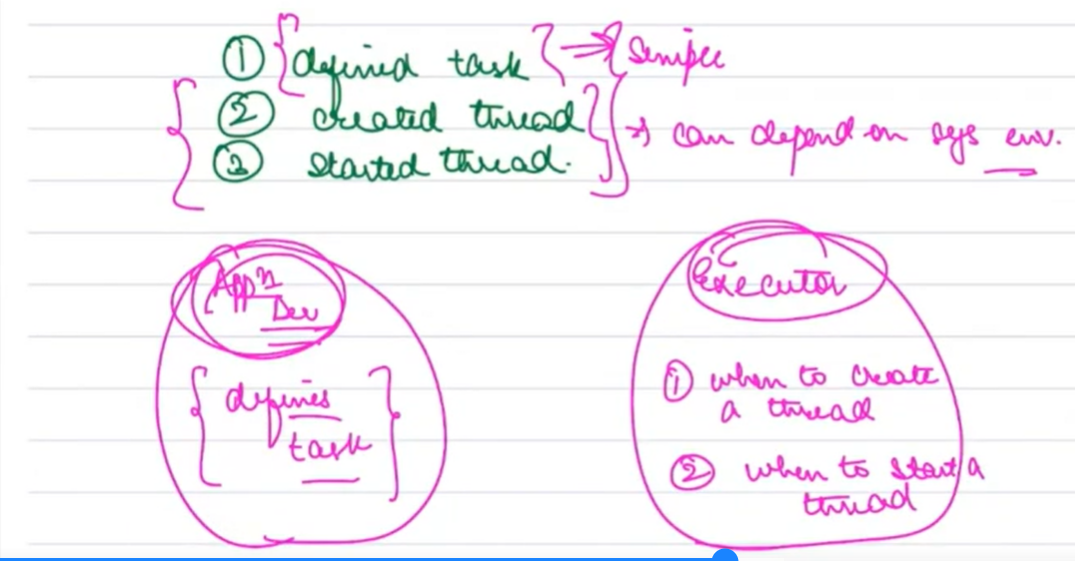 ① {defined task} → {Simple
② created thread
③ started thread.
→ can depend on sys env.
Appn
Dev
{defines
task}
Executor
① when to create
a thread
② when to start a
thread